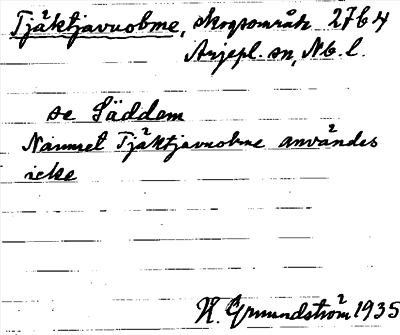 Tjäktjavuobme, skogsområde 27G4
Arjepl. sn, Nb. l.
se Säddem
Namnet Tjäktjavuobme användes
icke
H. Grundström 1935